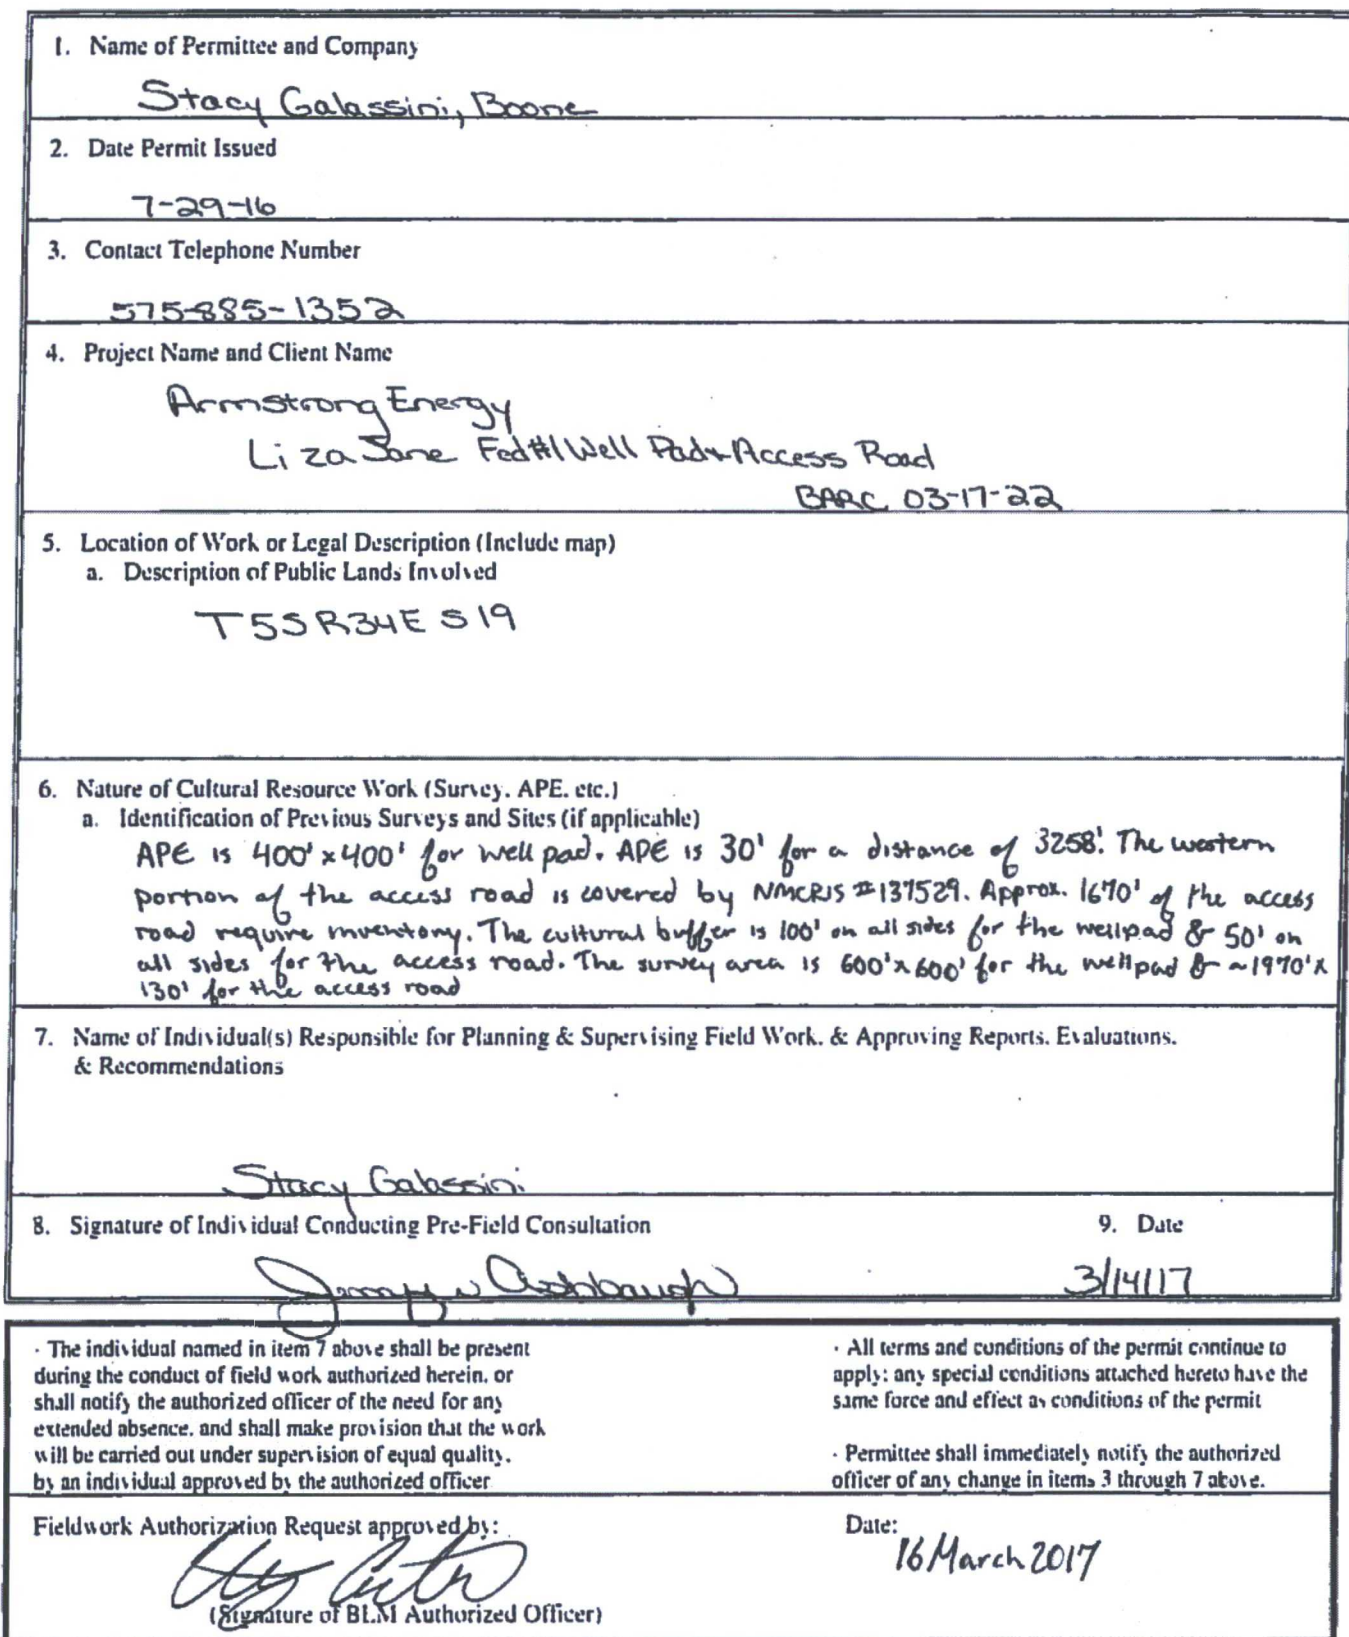 1. Name of Permittee and Company
Stacy Galassini, Boone
2. Date Permit Issued
7-29-16
3. Contact Telephone Number
575-885-1352
4. Project Name and Client Name
Armstrong Energy
Liza Jane Fed #1 Well Pad & Access Road
BARC 03-17-22
5. Location of Work or Legal Description (Include map)
a. Description of Public Lands Involved
T5S R34E S19
6. Nature of Cultural Resource Work (Survey, APE, etc.)
a. Identification of Previous Surveys and Sites (if applicable)
APE is 400' x 400' for well pad. APE is 30' for a distance of 3258'. The western
portion of the access road is covered by NMCRIS #137529. Approx. 1670' of the access
road require inventory. The cultural buffer is 100' on all sides for the wellpad & 50' on
all sides for the access road. The survey area is 600' x 600' for the wellpad & ~1970' x
130' for the access road
7. Name of Individual(s) Responsible for Planning & Supervising Field Work, & Approving Reports, Evaluations,
& Recommendations
Stacy Galassini
8. Signature of Individual Conducting Pre-Field Consultation 9. Date
Ashbaugh 3/14/17
· The individual named in item 7 above shall be present
during the conduct of field work authorized herein, or
shall notify the authorized officer of the need for any
extended absence, and shall make provision that the work
will be carried out under supervision of equal quality,
by an individual approved by the authorized officer
· All terms and conditions of the permit continue to
apply; any special conditions attached hereto have the
same force and effect as conditions of the permit
· Permittee shall immediately notify the authorized
officer of any change in items 3 through 7 above.
Fieldwork Authorization Request approved by:
(Signature of BLM Authorized Officer)
Date:
16 March 2017